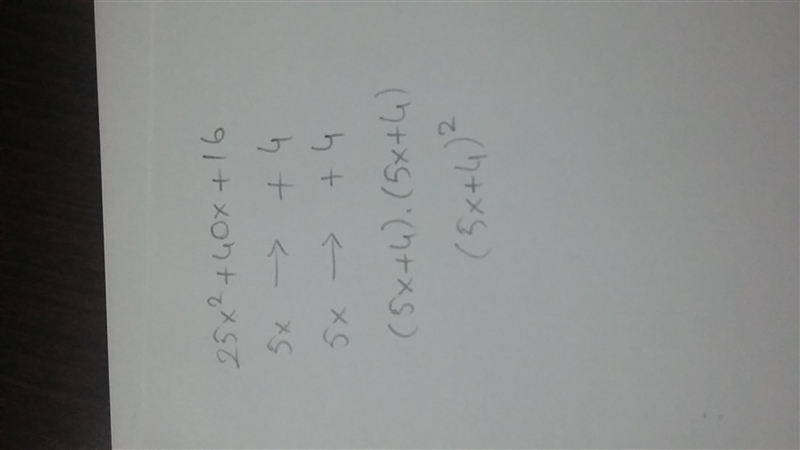 25x²+40x+16
5x → +4
5x → +4
(5x+4).(5x+4)
(5x+4)²